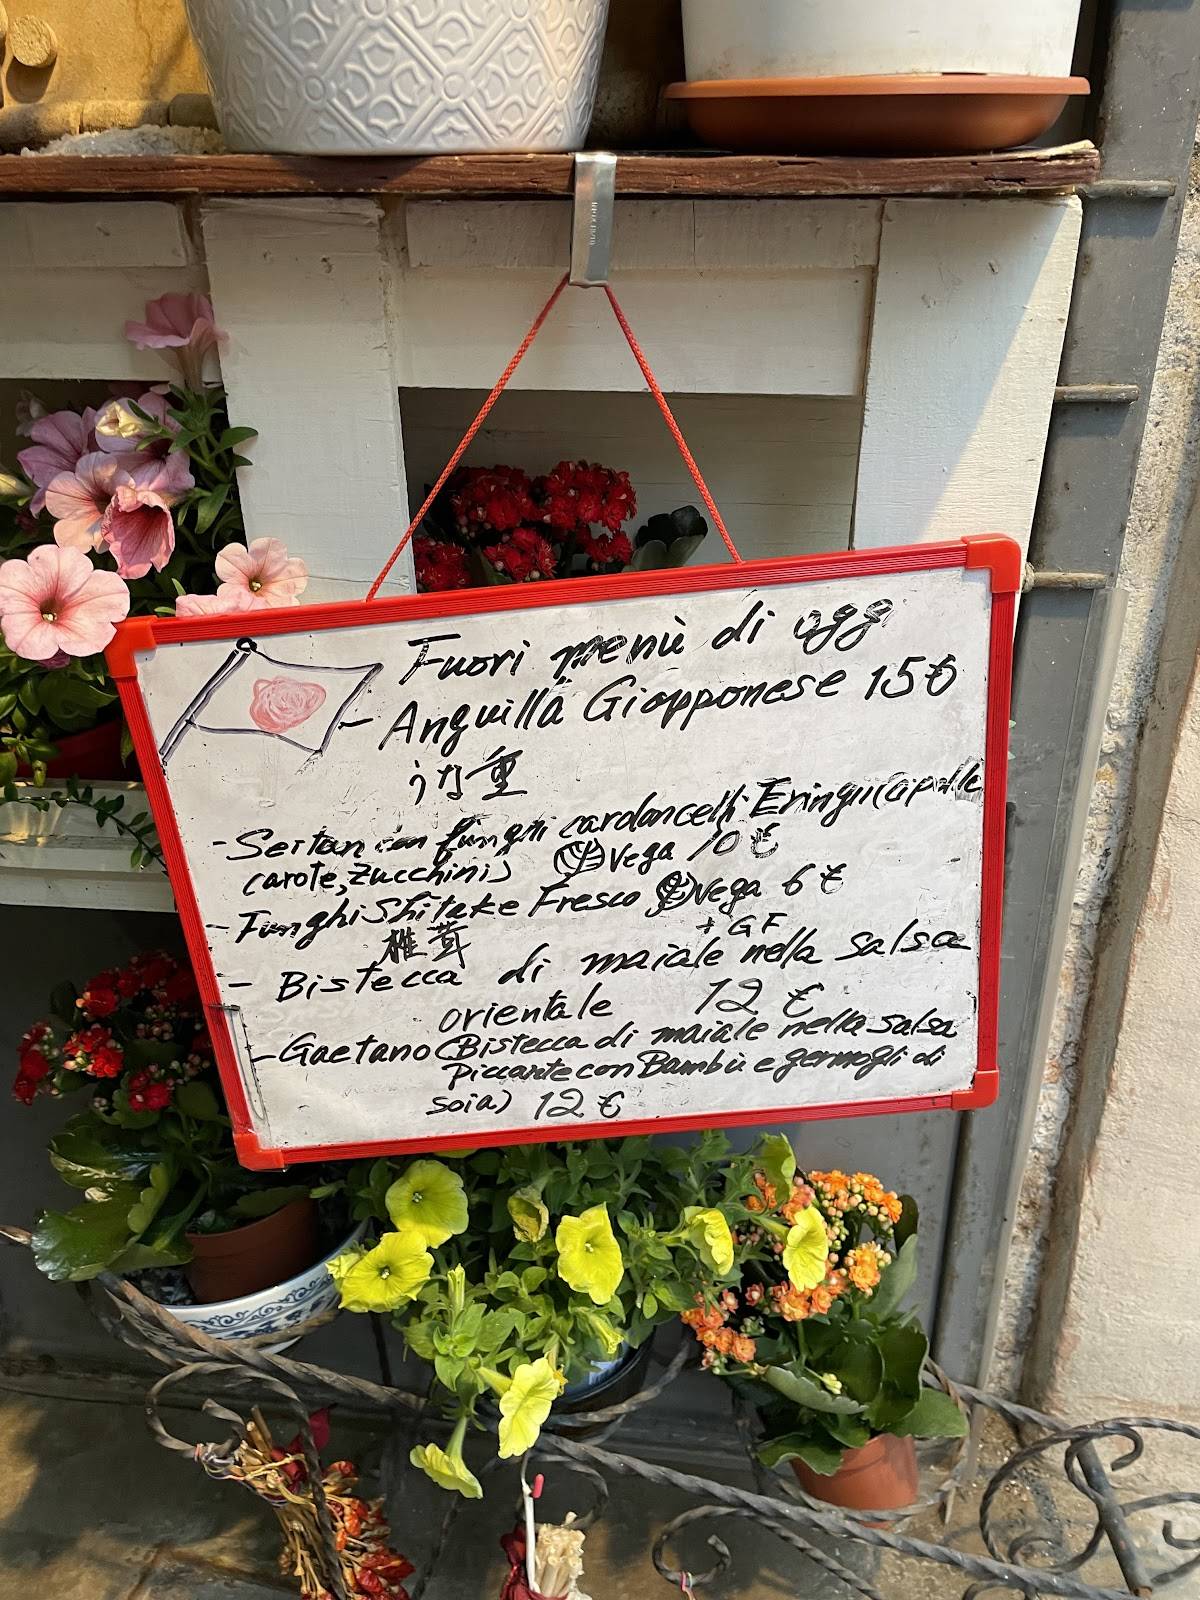 Fuori menù di oggi
- Anguilla Giapponese 15€
うな重
- Seitan con funghi cardoncelli Eringii (cipolle
carote, zucchini) Vega 10 €
- Funghi Shitake Fresco Vega 6 €
+ GF
椎茸
- Bistecca di maiale nella salsa
orientale 12 €
- Gaetano (Bistecca di maiale nella salsa
piccante con Bambù e germogli di
soia) 12 €